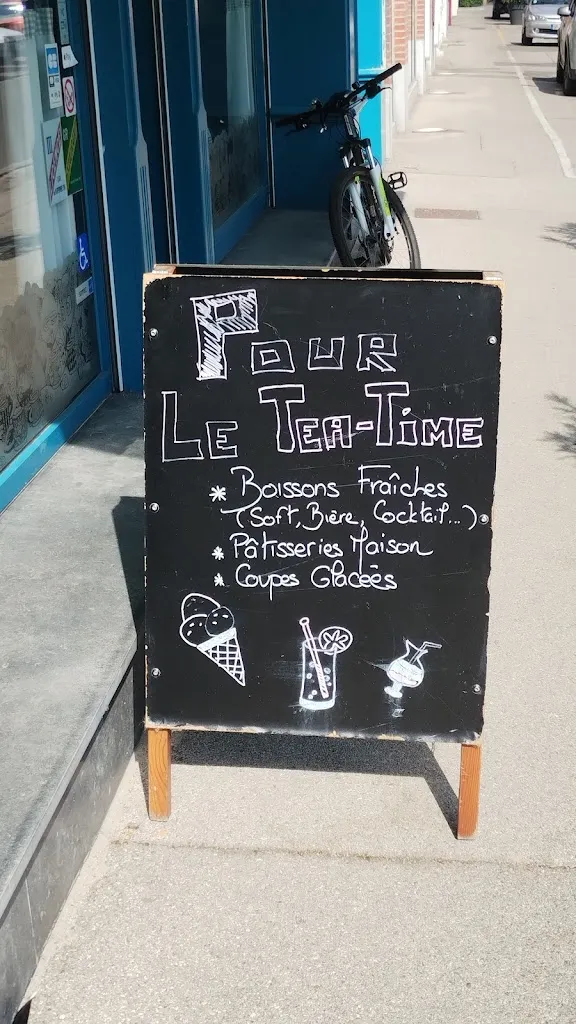 Pour
Le Tea-Time
* Boissons Fraîches
(Soft, Bière, Cocktail...)
* Pâtisseries Maison
* Coupes Glacées